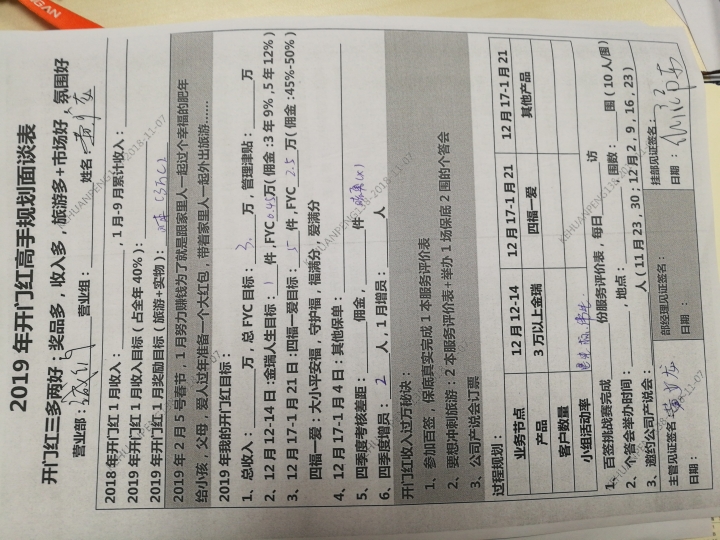 2019年开门红高手规划面谈表
开门红三多两好：奖品多，收入多，旅游多+市场好，氛围好
营业部： 营业组： 姓名：
2018年开门红1月收入： ，1月-9月累计收入：
2019年开门红1月收入目标（占全年40%）：
2019年开门红1月奖励目标（旅游+实物）：
2019年2月5号春节，1月努力赚钱为了就是跟家里人一起过个幸福的肥年
给小孩，父母，爱人过年准备一个大红包，带着家里人一起外出旅游……
2019年我的开门红目标：
1、总收入： 万 总FYC目标： 3 万，管理津贴： 万
2、12月12-14日:金瑞人生目标： 1 件,FYC 0.45万(佣金:3年9%,5年12%)
3、12月17-1月21日:四福一爱目标： 5 件,FYC 2.5 万(佣金:45%-50%)
四福一爱：大小平安福，守护福，福满分，爱满分
4、12月17-1月4日：其他保单： 件
5、四季度考核差距： 佣金，
6、四季度增员： 2 人，1月增员： 人
开门红收入过万秘诀：
1、参加百签，保底真实完成1本服务评价表
2、要想冲刺旅游：2本服务评价表+举办1场保底2围的个答会
3、公司产说会订票
过程规划：
业务节点 12月12-14 12月17-1月21 12月17-1月21
产品 3万以上金瑞 四福一爱 其他产品
客户数量
小组活动率
1、百签挑战赛完成 份服务评价表，每日 访
2、个答会举办时间： ，地点： ,围数： 围（10人/围）
3、邀约公司产说会： 人（11月23，30；12月2，9，16，23）
主管见证签名： 部经理见证签名： 挂部见证签名：
日期： 日期： 日期：
KEHUANPENG118-2018-11-07